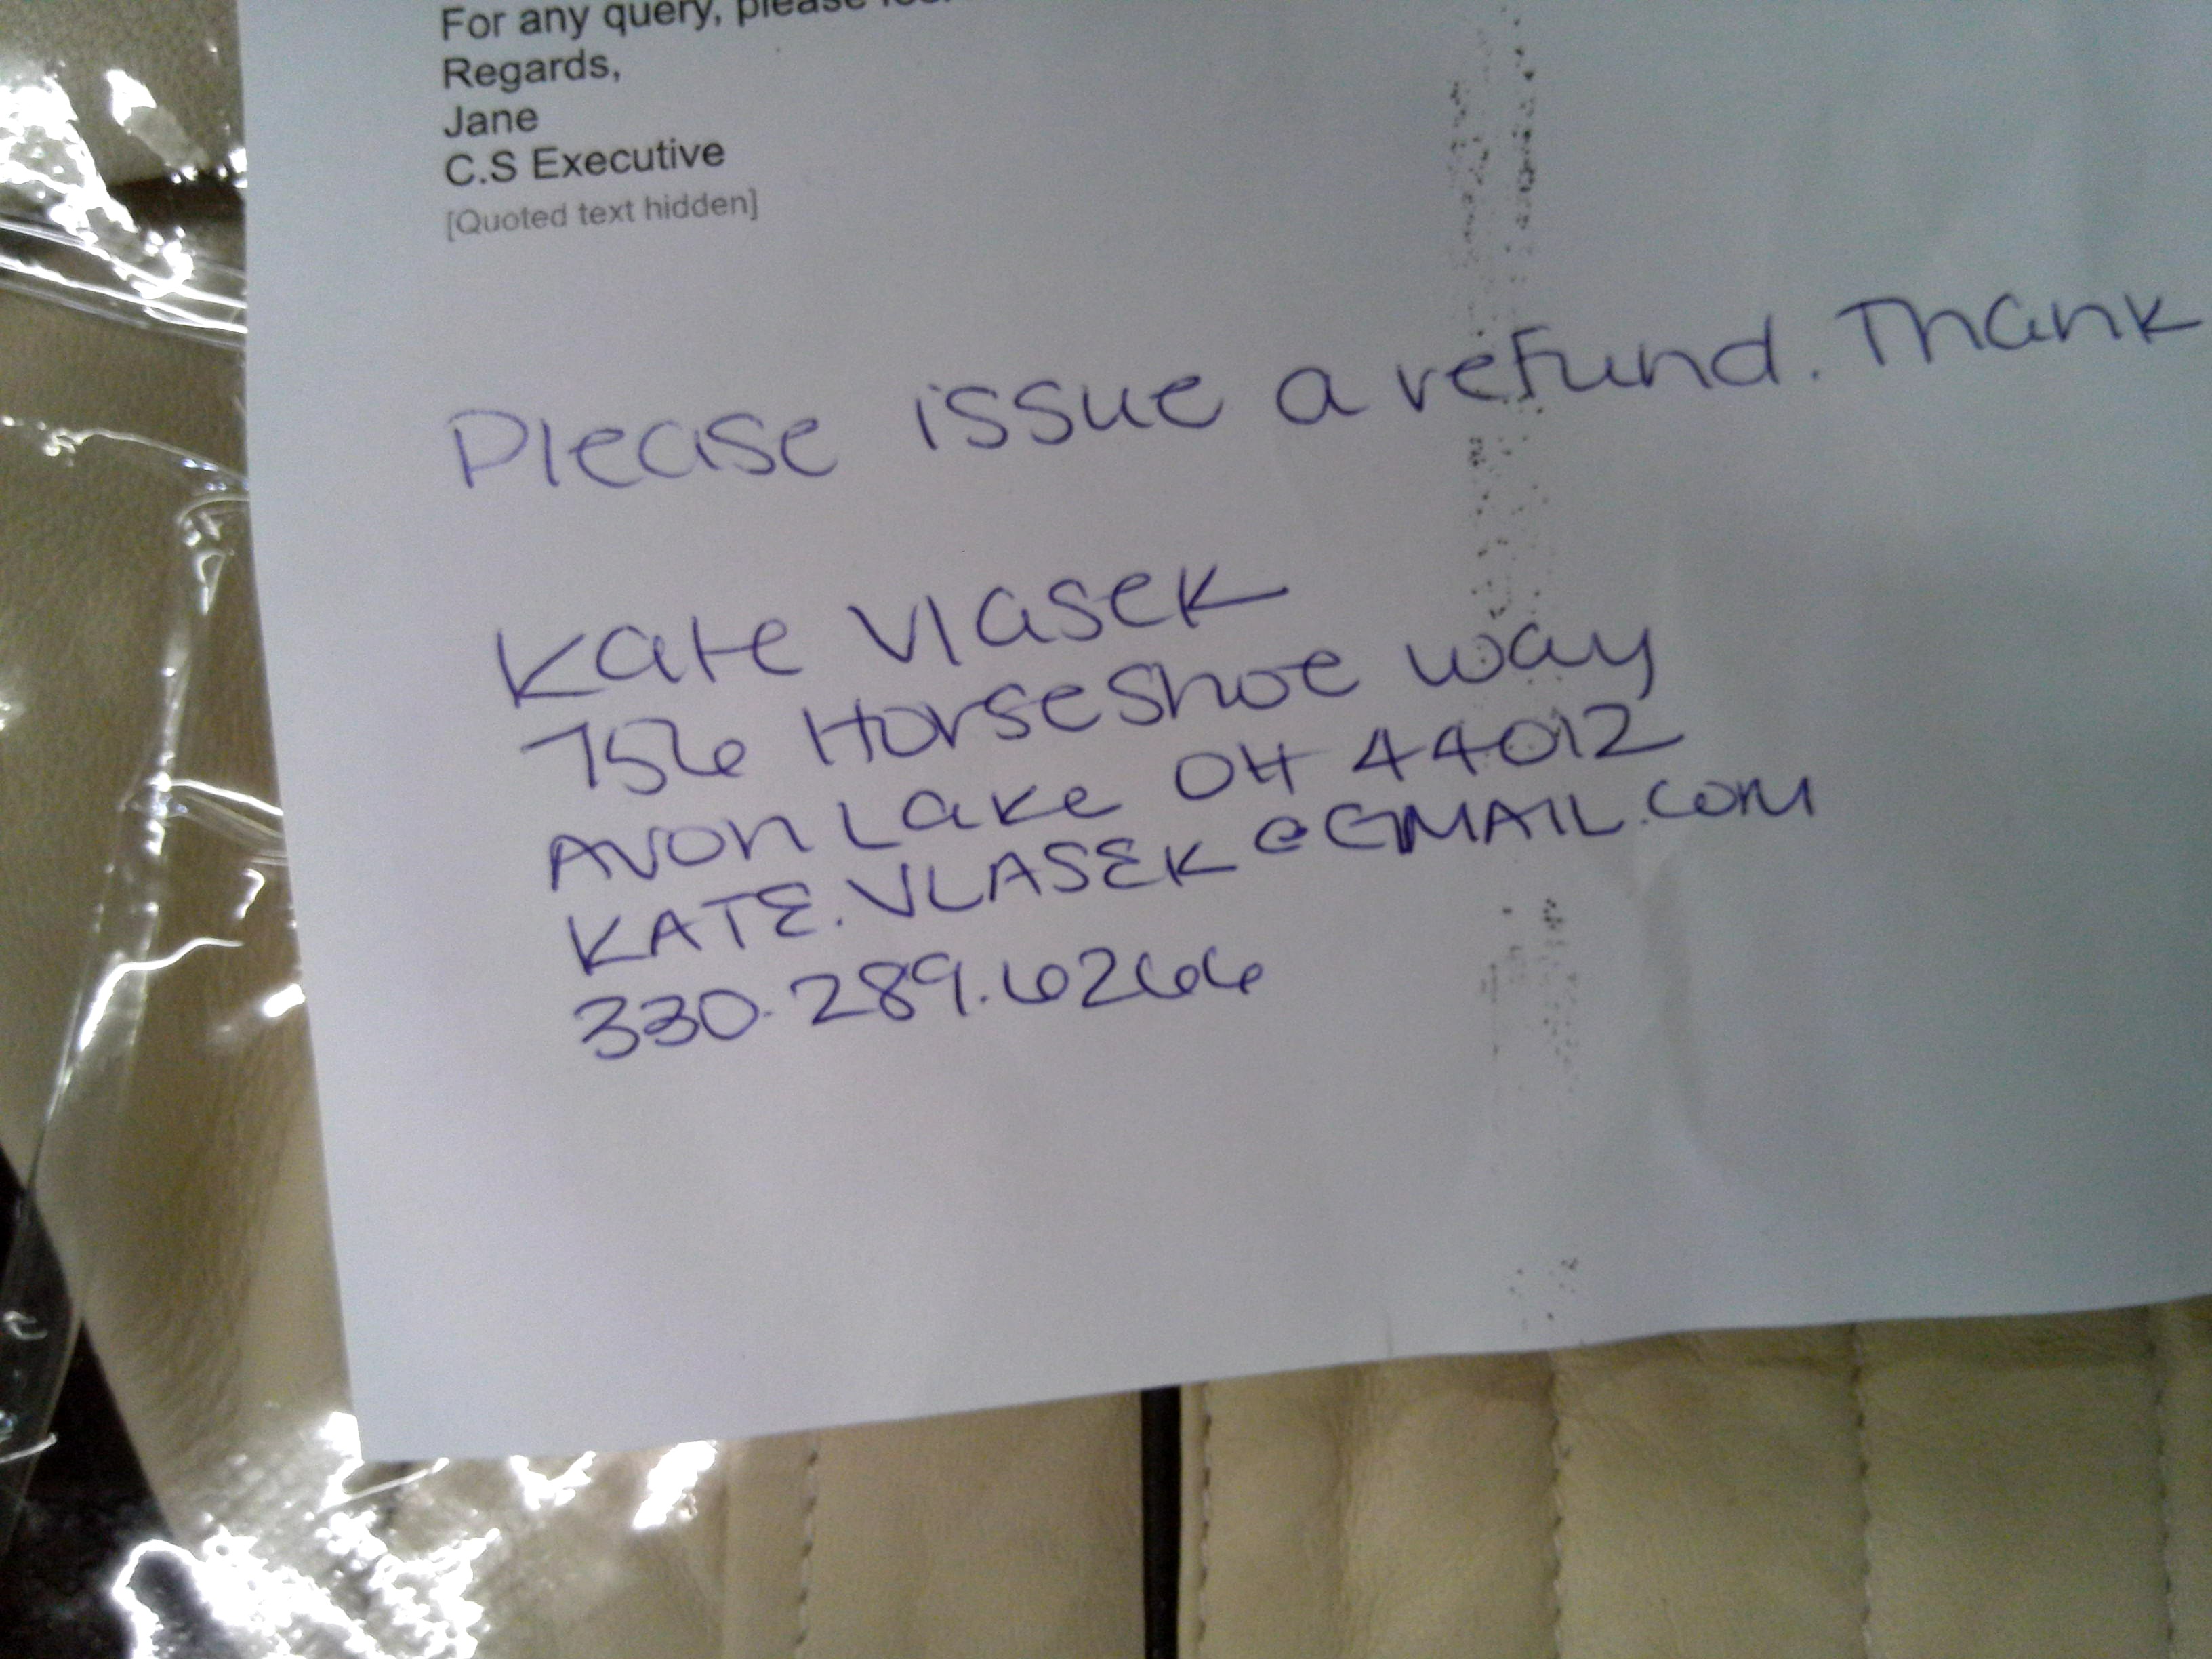 For any query, please
Regards,
Jane
C.S Executive
[Quoted text hidden]
Please issue a refund. Thank
Kate Vlasek
756 Horseshoe way
Avon Lake OH 44012
KATE.VLASEK@GMAIL.COM
330.289.6266